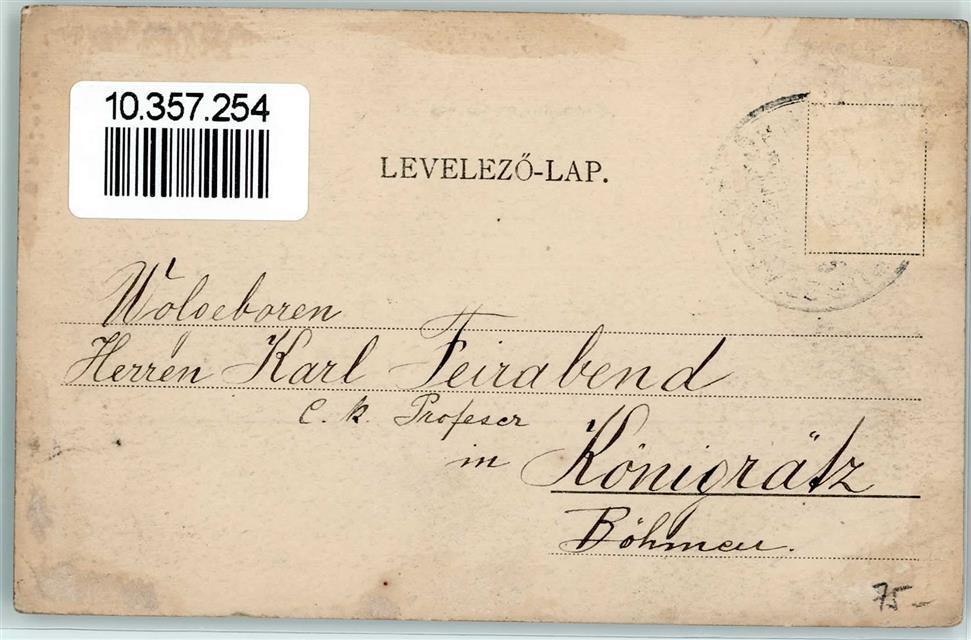 10.357.254
LEVELEZŐ-LAP.
Wolgeboren
Herren Karl Feirabend
C. k. Profeser
in Königrätz
Böhmen.
75-